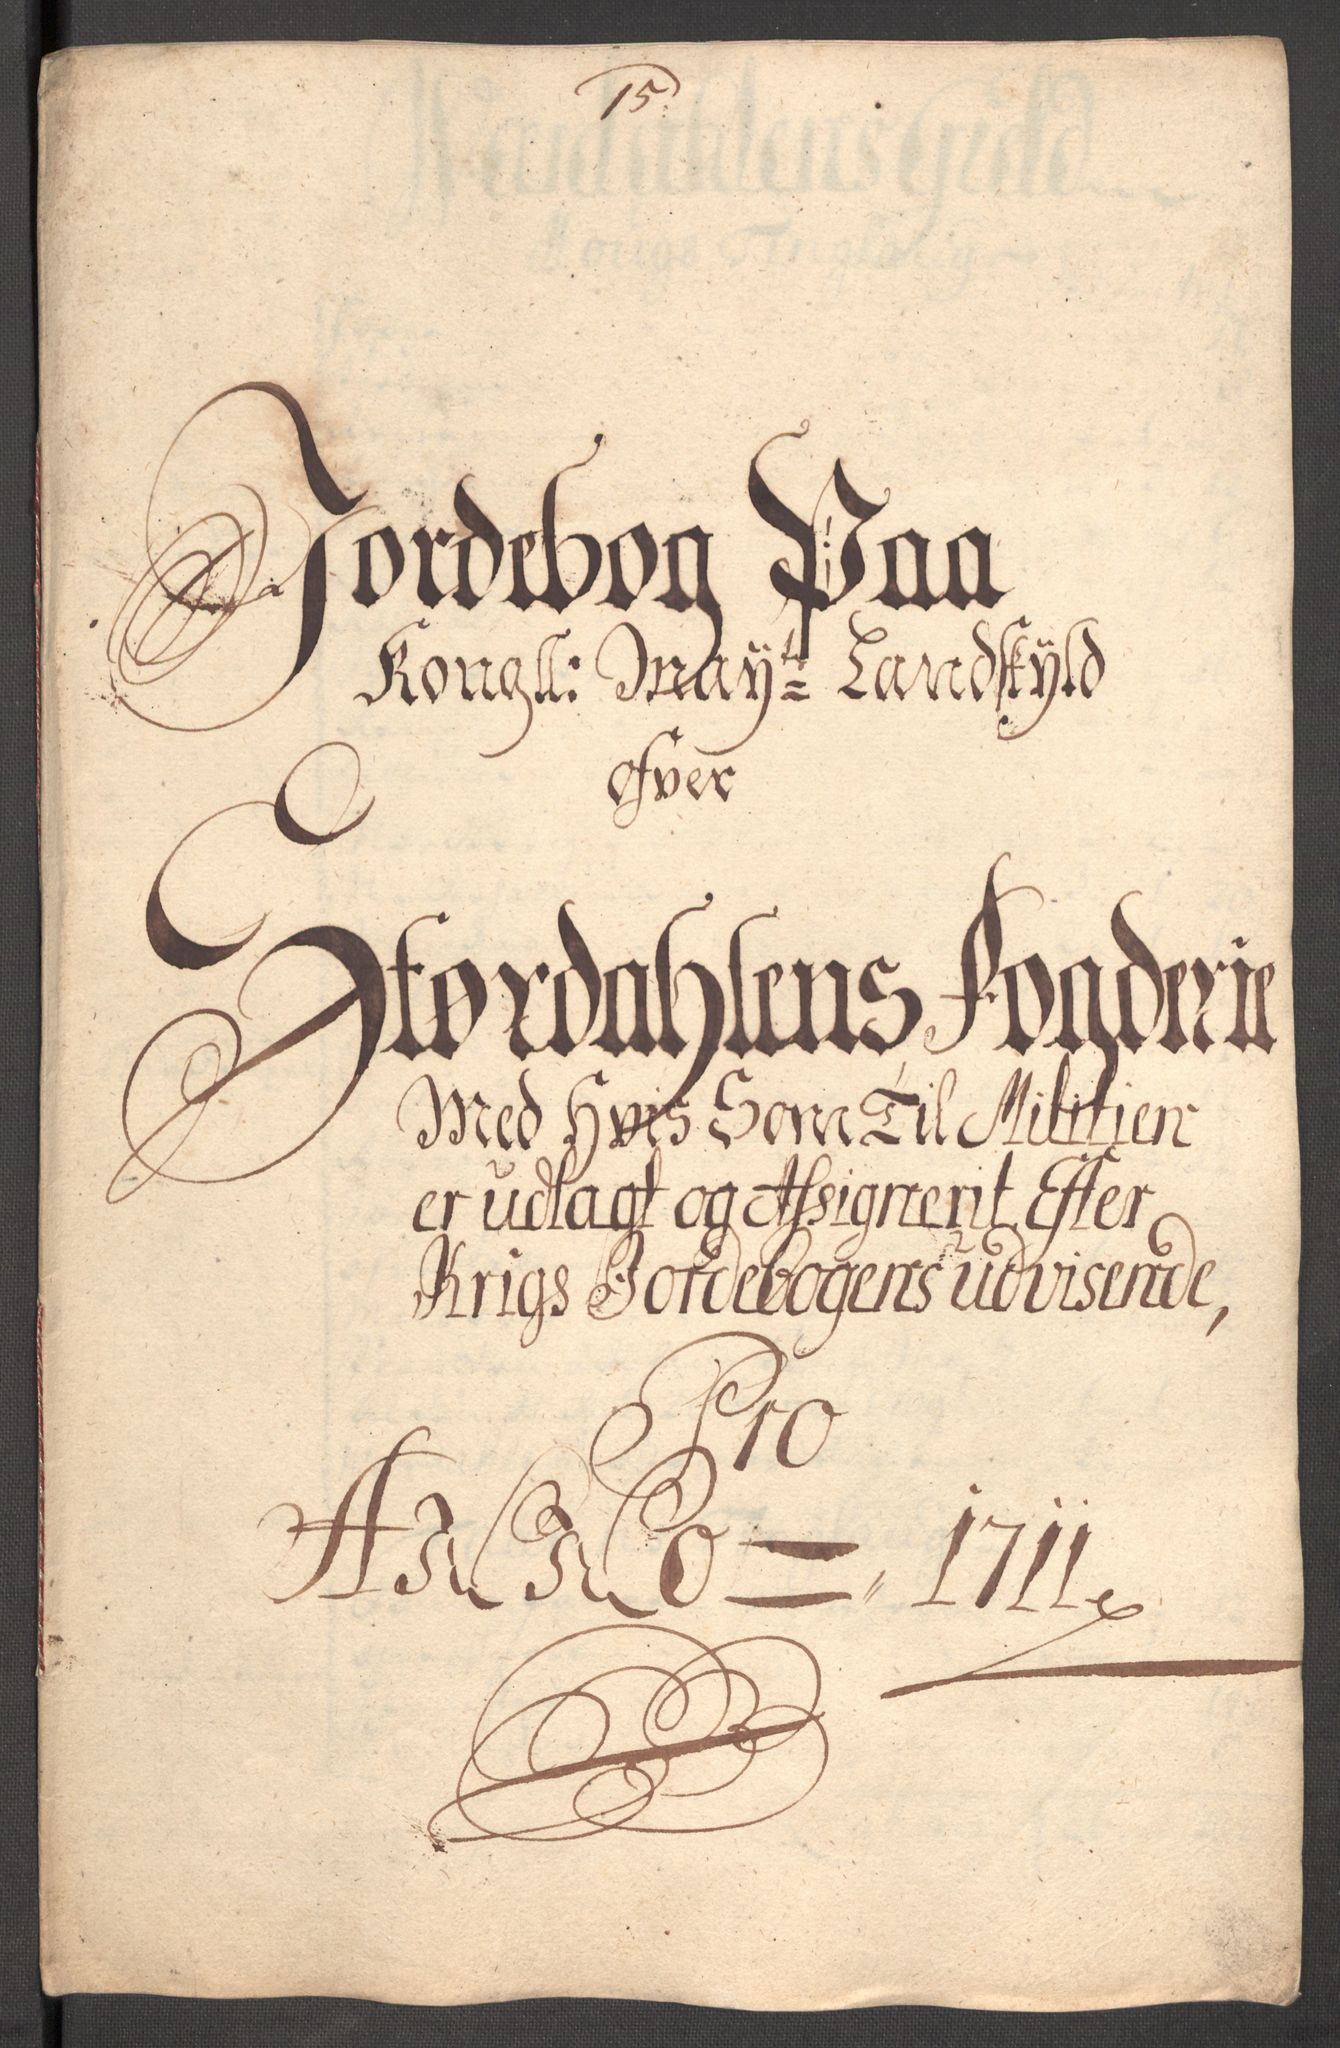 15.
Jordebog Paa
Kongll: Mayts Landskyld
ofver
Størdahlens Fogderie
Med Hvis Som Til Militien
er udlagt og Assignerit Efter
Krigs Jordebogens udvisende,
Pro
ANNO =, 1711